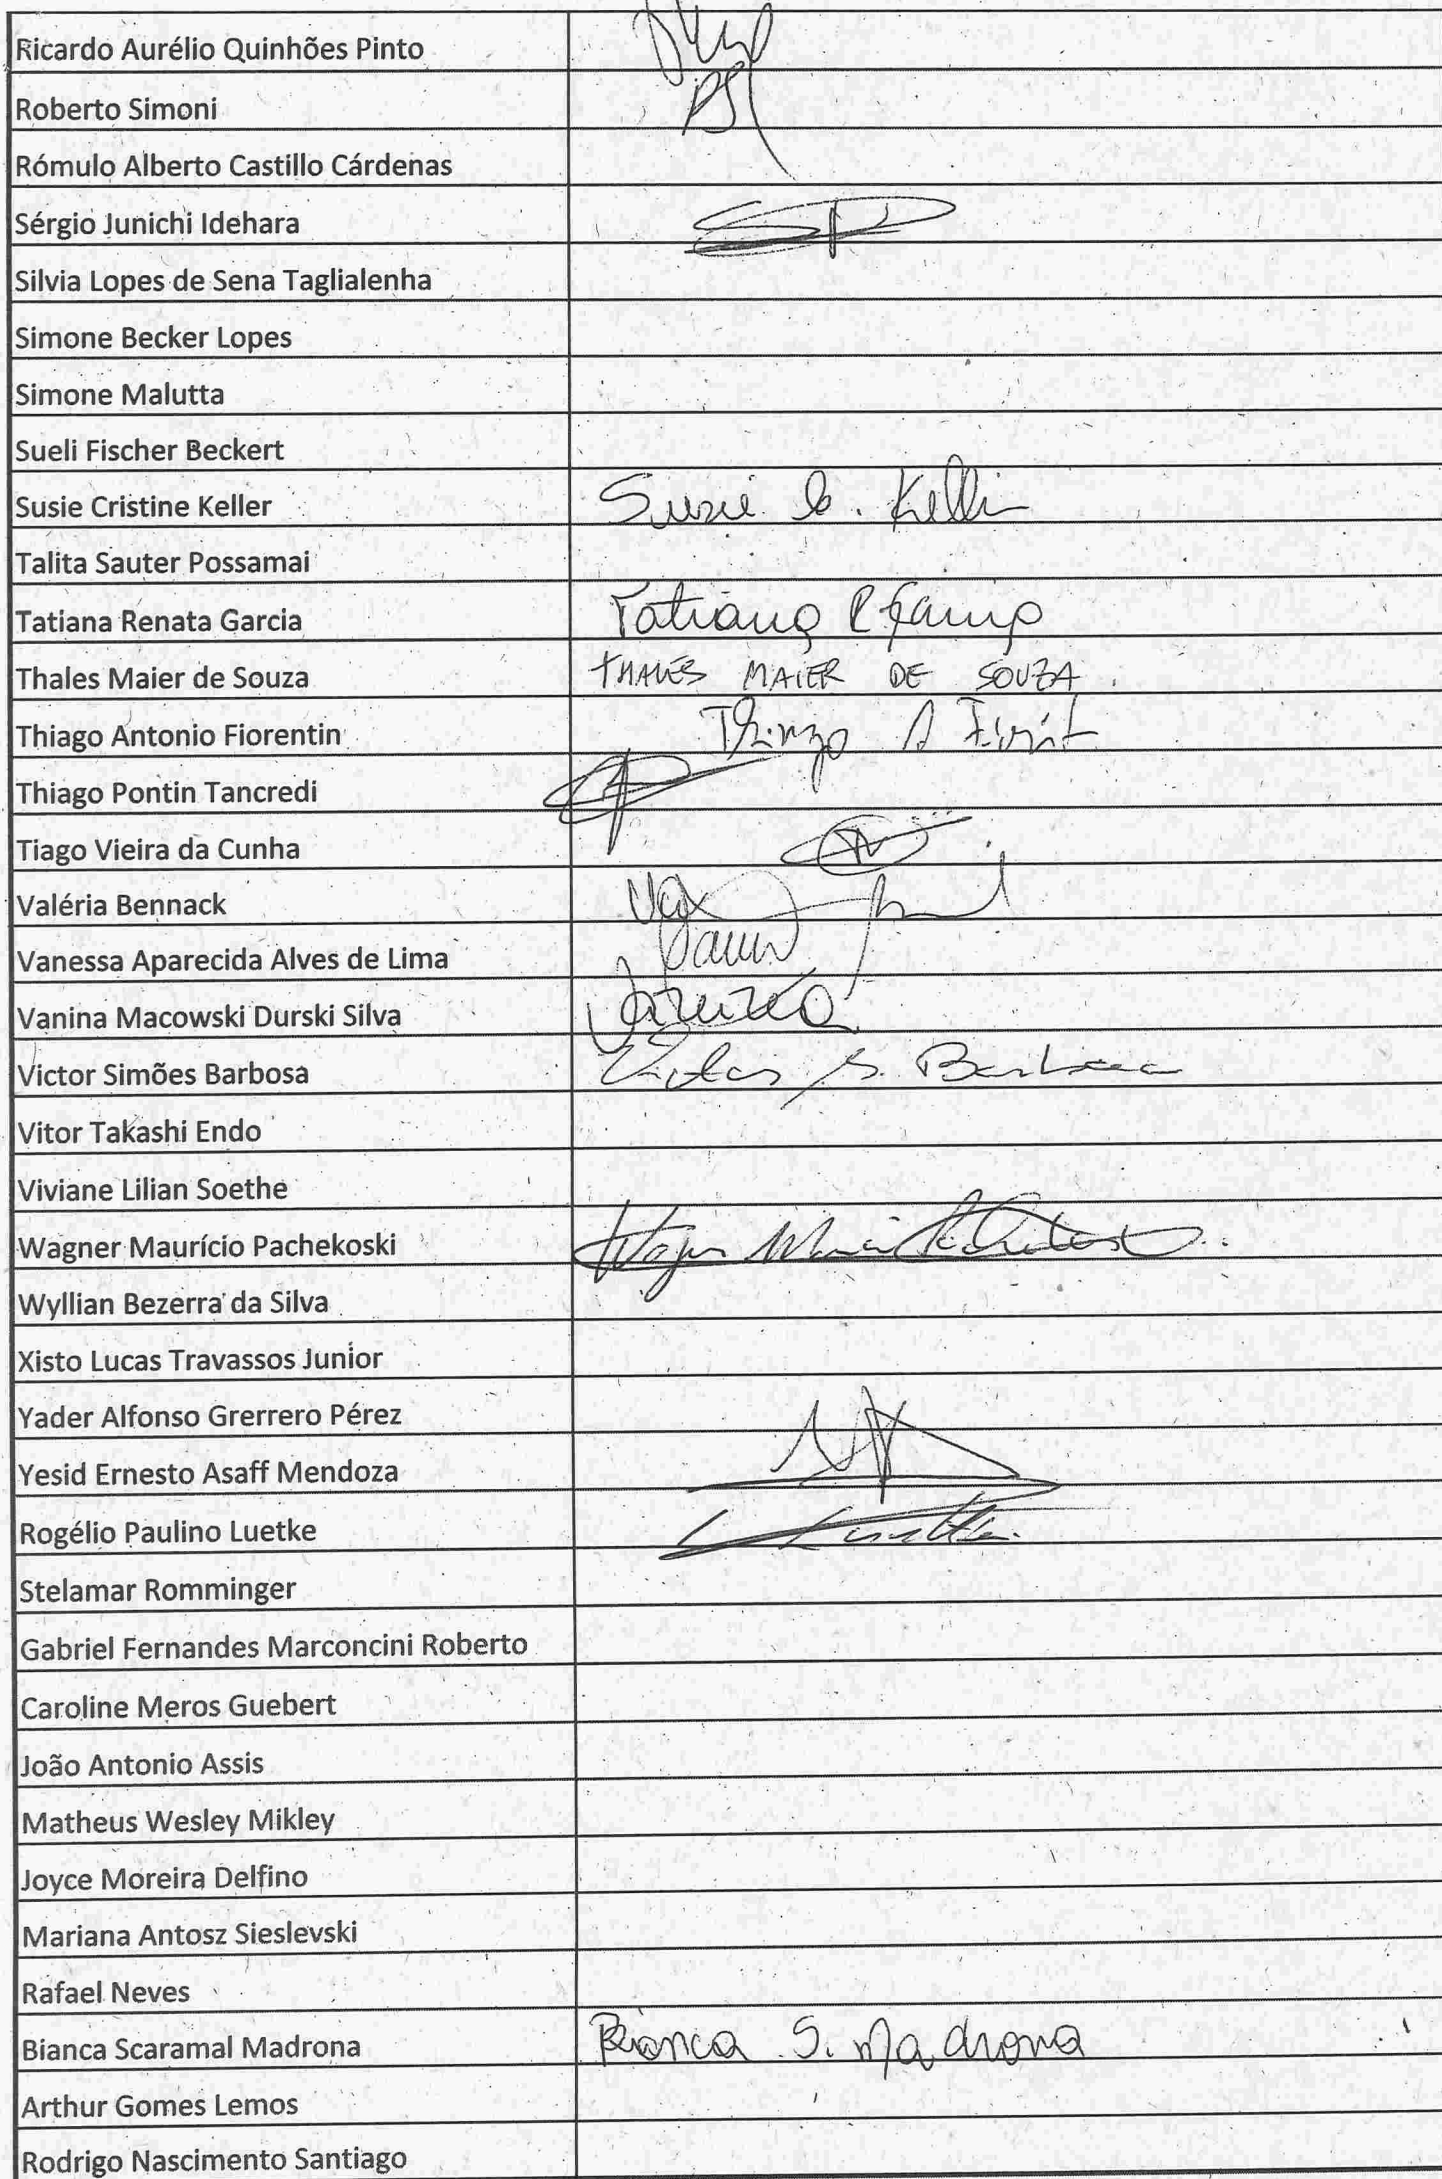 Ricardo Aurélio Quinhões Pinto
Roberto Simoni RS
Rómulo Alberto Castillo Cárdenas
Sérgio Junichi Idehara
Silvia Lopes de Sena Taglialenha
Simone Becker Lopes
Simone Malutta
Sueli Fischer Beckert
Susie Cristine Keller Susie C. Keller
Talita Sauter Possamai
Tatiana Renata Garcia Tatiana R Garcia
Thales Maier de Souza THALES MAIER DE SOUZA
Thiago Antonio Fiorentin Thiago A
Thiago Pontin Tancredi
Tiago Vieira da Cunha
Valéria Bennack
Vanessa Aparecida Alves de Lima
Vanina Macowski Durski Silva
Victor Simões Barbosa Victor S. Barbosa
Vitor Takashi Endo
Viviane Lilian Soethe
Wagner Maurício Pachekoski
Wyllian Bezerra da Silva
Xisto Lucas Travassos Junior
Yader Alfonso Grerrero Pérez
Yesid Ernesto Asaff Mendoza
Rogélio Paulino Luetke
Stelamar Romminger
Gabriel Fernandes Marconcini Roberto
Caroline Meros Guebert
João Antonio Assis
Matheus Wesley Mikley
Joyce Moreira Delfino
Mariana Antosz Sieslevski
Rafael Neves
Bianca Scaramal Madrona Bianca S. Madrona
Arthur Gomes Lemos
Rodrigo Nascimento Santiago